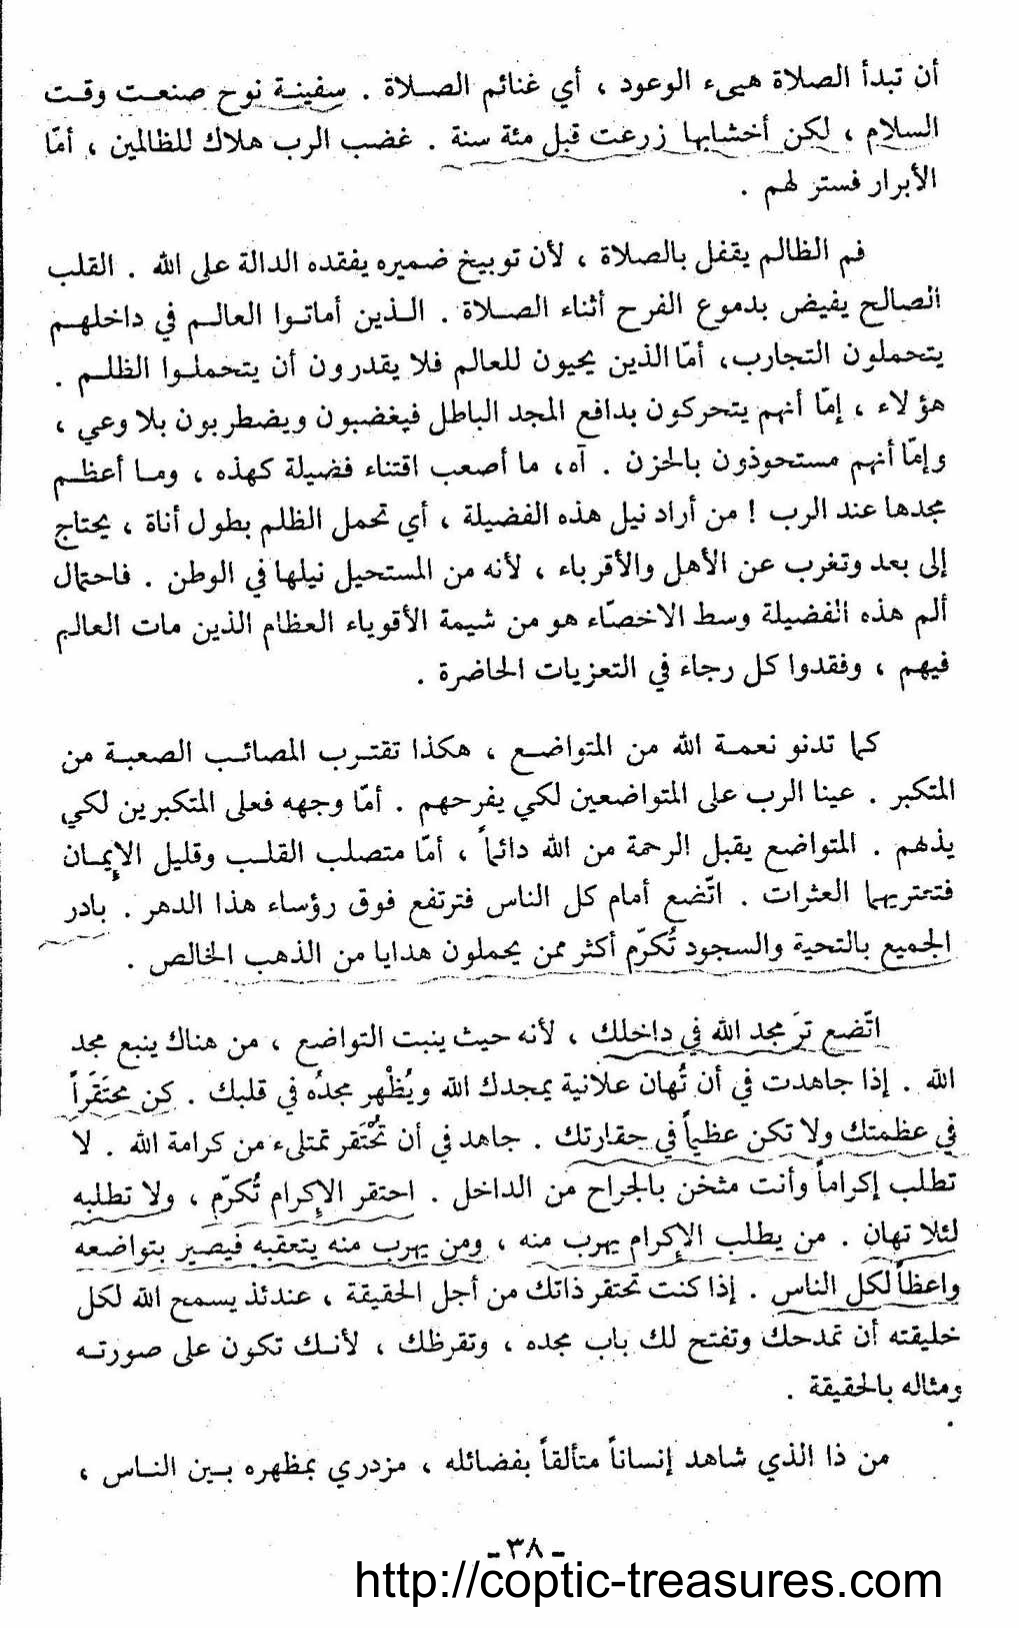 أن تبدأ الصلاة هيىء الوعود ، أي غنائم الصلاة . سفينة نوح صنعت وقت
السلام ، لكن أخشابها زرعت قبل مئة سنة . غضب الرب هلاك للظالمين ، أمّا
الأبرار فستر لهم .
فم الظالم يقفل بالصلاة ، لأن توبيخ ضميره يفقده الدالة على الله . القلب
الصالح يفيض بدموع الفرح أثناء الصلاة . الذين أماتوا العالم في داخلهم
يتحملون التجارب، أمّا الذين يحيون للعالم فلا يقدرون أن يتحملوا الظلم .
هؤلاء ، إمّا أنهم يتحركون بدافع المجد الباطل فيغضبون ويضطربون بلا وعي ،
وإمّا أنهم مستحوذون بالحزن . آه، ما أصعب اقتناء فضيلة كهذه ، وما أعظم
مجدها عند الرب ! من أراد نيل هذه الفضيلة ، أي تحمل الظلم بطول أناة ، يحتاج
إلى بعد وتغرب عن الأهل والأقرباء ، لأنه من المستحيل نيلها في الوطن . فاحتمال
ألم هذه الفضيلة وسط الاخصّاء هو من شيمة الأقوياء العظام الذين مات العالم
فيهم ، وفقدوا كل رجاء في التعزيات الحاضرة .
كما تدنو نعمة الله من المتواضع ، هكذا تقترب المصائب الصعبة من
المتكبر . عينا الرب على المتواضعين لكي يفرحهم . أمّا وجهه فعلى المتكبرين لكي
يذلهم . المتواضع يقبل الرحمة من الله دائماً ، أمّا متصلب القلب وقليل الإيمان
فتعتريهما العثرات . اتّضع أمام كل الناس فترتفع فوق رؤساء هذا الدهر . بادر
الجميع بالتحية والسجود تُكرّم أكثر ممن يحملون هدايا من الذهب الخالص .
اتّضع ترَ مجد الله في داخلك ، لأنه حيث ينبت التواضع ، من هناك ينبع مجد
الله . إذا جاهدت في أن تُهان علانية يمجدك الله ويُظْهر مجدُه في قلبك . كن محتَقَراً
في عظمتك ولا تكن عظيماً في حقارتك . جاهد في أن تحُتْقر تمتلىء من كرامة الله . لا
تطلب إكراماً وأنت مثخن بالجراح من الداخل . احتقر الإكرام تُكرّم ، ولا تطلبه
لئلا تهان . من يطلب الإكرام يهرب منه ، ومن يهرب منه يتعقبه فيصير بتواضعه
واعظاً لكل الناس . إذا كنت تحتقر ذاتك من أجل الحقيقة ، عندئذ يسمح الله لكل
خليقته أن تمدحك وتفتح لك باب مجده ، وتقرظك ، لأنك تكون على صورته
ومثاله بالحقيقة .
من ذا الذي شاهد إنساناً متألقاً بفضائله ، مزدري بمظهره بين الناس ،
- ٣٨ -
http://coptic-treasures.com